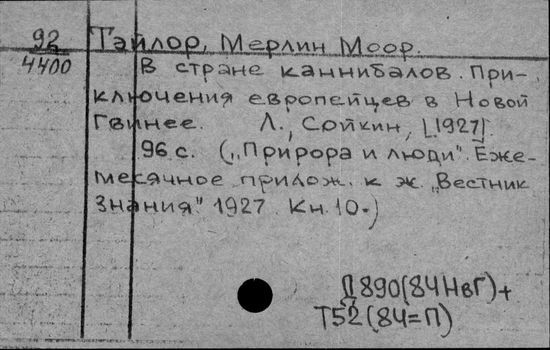 92
4400
Тайлор, Мерлин Моор.
В стране каннибалов. При-
ключения европейцев в Новой
Гвинее. Л., Сойкин, [1927].
96 с. („Прирора и люди". Еже-
месячное прилож. к ж. „Вестник
Знания". 1927. Кн. 10.)
Д890(84НвГ)+
Т52(84=П)